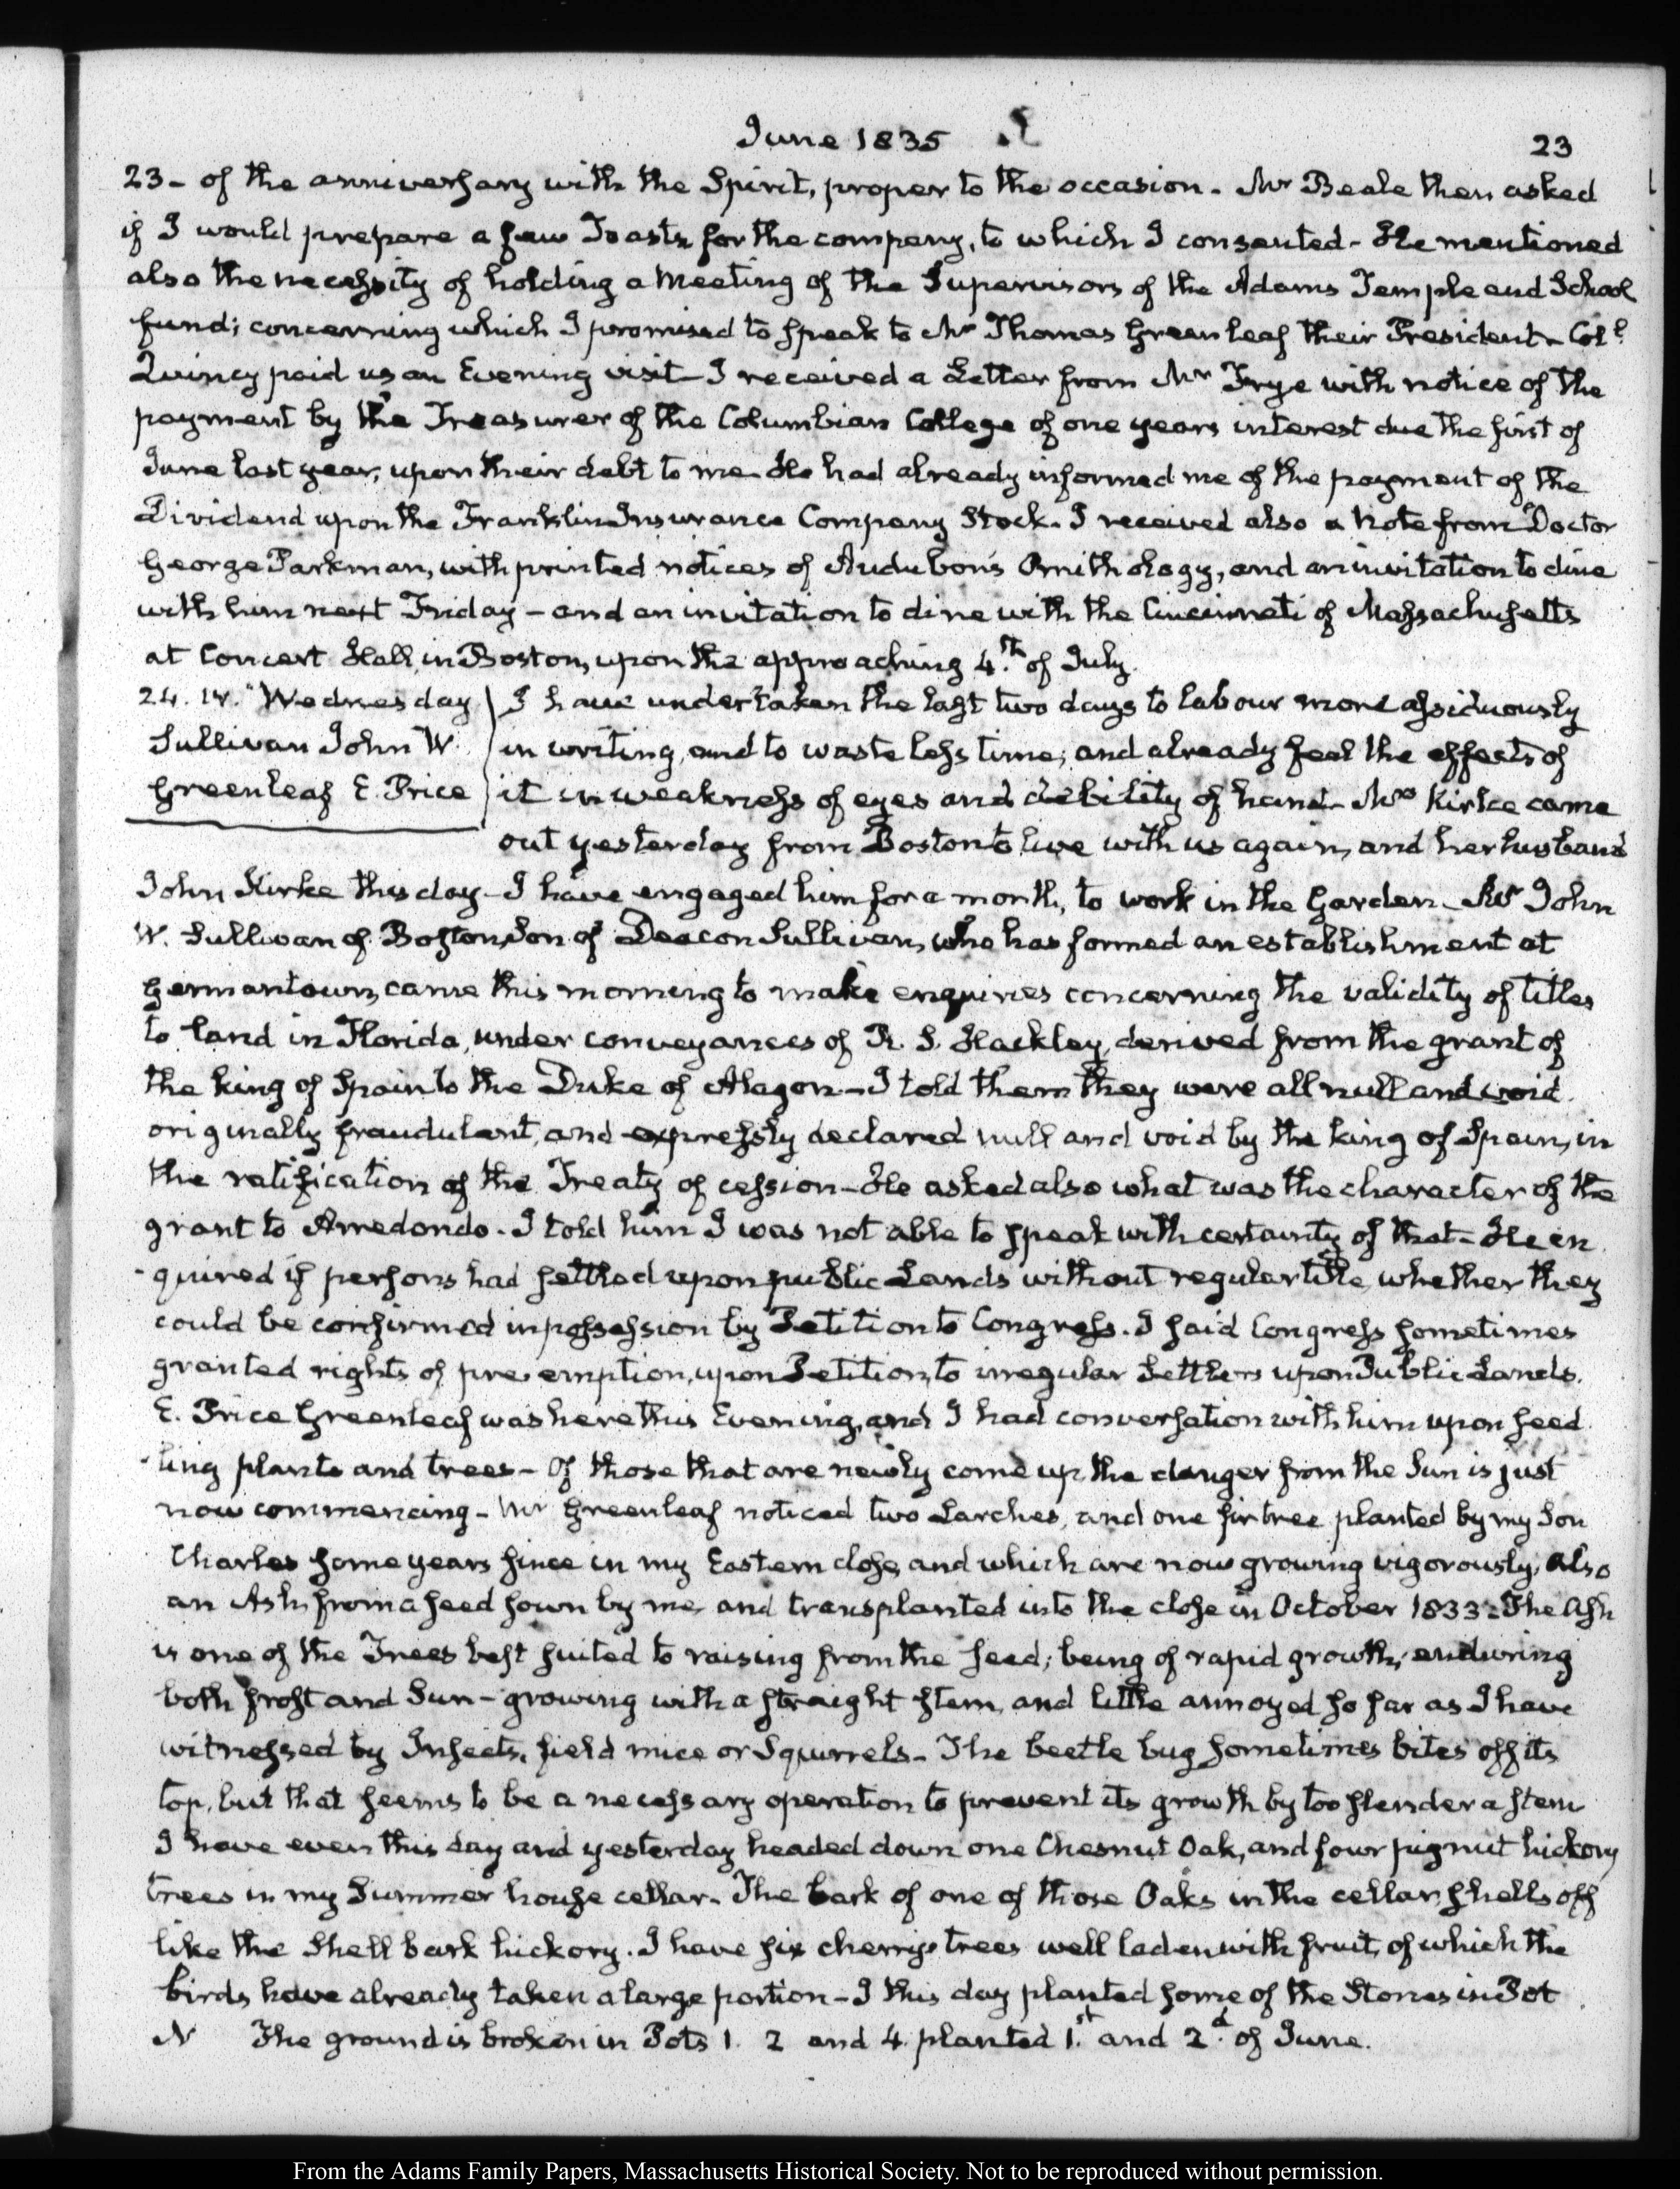 June 1835
23
23- of the anniversary with the Spirit, proper to the occasion. Mr Beale then asked
if I would prepare a few Toasts for the company, to which I consented- He mentioned
also the necessity of holding a Meeting of the Supervisors of the Adams Temple and School
fund; concerning which I promised to speak to Mr Thomas Greenleaf their President- Col.l
Quincy paid us an Evening visit- I received a Letter from Mr Frye with notice of the
payment by the Treasurer of the Columbian College of one years interest due the first of
June last year, upon their debt to me- He had already informed me of the payment of the
Dividend upon the Franklin Insurance Company Stock. I received also a Note from Doctor
George Parkman, with printed notices of Audubon's Ornithology, and an invitation to dine
with him next Friday- and an invitation to dine with the Cincinnati of Massachusetts
at Concert Hall, in Boston, upon the approaching 4.th of July.
24. IV. Wednesday I have undertaken the last two days to labour more assiduously
Sullivan John W. in writing, and to waste less time; and already feel the effects of
Greenleaf E. Price it in weakness of eyes and debility of hand- Mrs Kirke came
out yesterday from Boston to live with us again, and her husband
John Kirke this day- I have engaged him for a month, to work in the Garden- Mr John
W. Sullivan of Boston, Son of Deacon Sullivan, who has formed an establishment at
Germantown, came this morning to make enquiries concerning the validity of titles
to land in Florida, under conveyances of R. S. Hackley, derived from the grant of
the king of Spain to the Duke of Alagon- I told them they were all null and void
originally fraudulent, and expressly declared null and void by the king of Spain, in
the ratification of the Treaty of cession- He asked also what was the character of the
grant to Arredondo. I told him I was not able to speak with certainty of that- He en
-quired if persons had settled upon public Lands without regular title, whether they
could be confirmed in possession by Petition to Congress. I said Congress sometimes
granted rights of pre-emption, upon Petition, to irregular Settlers upon Public Lands.
E. Price Greenleaf was here this Evening, and I had conversation with him upon seed
-ling plants and trees- Of those that are newly come up, the danger from the Sun is just
now commencing- Mr Greenleaf noticed two Larches, and one fir tree planted by my Son
Charles some years since in my Eastern close, and which are now growing vigorously, also
an Ash, from a seed sown by me, and transplanted into the close in October 1833- The Ash
is one of the Trees best suited to raising from the seed; being of rapid growth, enduring
both frost and Sun- growing with a straight stem, and little annoyed so far as I have
witnessed by Insects, field mice or Squirrels- The beetle bug sometimes bites off its
top, but that seems to be a necessary operation to prevent its growth by too slender a stem
I have even this day and yesterday headed down one Chesnut Oak, and four pignut hickory
trees in my Summer house cellar- The bark of one of those Oaks in the cellar, shells off
like the Shell bark hickory. I have six cherry-trees well laden with fruit, of which the
birds have already taken a large portion- I this day planted some of the Stones in Pot
N The ground is broken in Pots 1. 2 and 4. planted 1.st and 2.d of June.
From the Adams Family Papers, Massachusetts Historical Society. Not to be reproduced without permission.